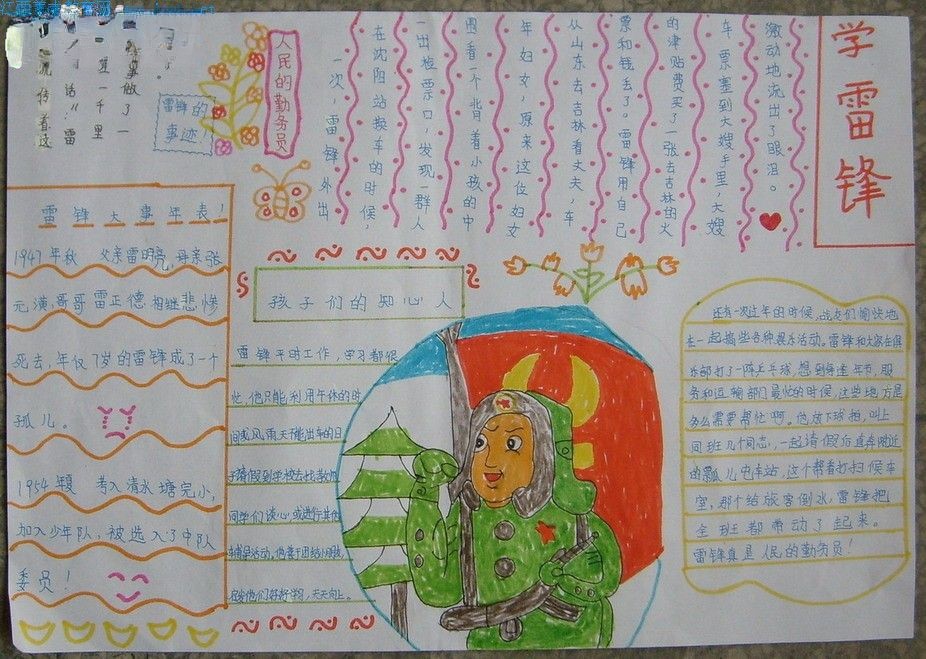 学雷锋
人民的勤务员
一次，雷锋外出
在沈阳站换车的时候，
一出检票口，发现一群人
围看一个背着小孩的中
年妇女，原来这位妇女
从山东去吉林看丈夫，车
票和钱丢了。雷锋用自己
的津贴费买了一张去吉林的火
车票塞到大嫂手里，大嫂
激动地流出了眼泪。
雷锋的
事迹
事做了一
里
话"：雷
流传着这
雷锋大事年表！
1947年秋 父亲雷明亮，母亲张
元满，哥哥雷正德相继悲惨
死去，年仅7岁的雷锋成了一个
孤儿。
1954年夏 考入清水塘完小，
加入少年队，被选入了中队
委员！
孩子们的知心人
雷锋平时工作，学习都很
忙，他只能利用午休的时
间或风雨天不能出车的日
子请假到学校去找教师
同学们谈心或进行其他
好好学习，天天向上。
还有一次过年的时候，战友们愉快地
在一起搞些各种娱乐活动。雷锋和大家在俱
乐部打了一阵乒乓球，想到每逢年节，服
务和运输部门最忙的时候，这些地方是
多么需要帮忙啊。他放下球拍，叫上
同班几个同志，一起请假后直奔附近
的瓢儿屯车站，这个帮着打扫候车
室，那个给旅客倒水，雷锋把
全班都带动了起来。
雷锋真是人民的勤务员！